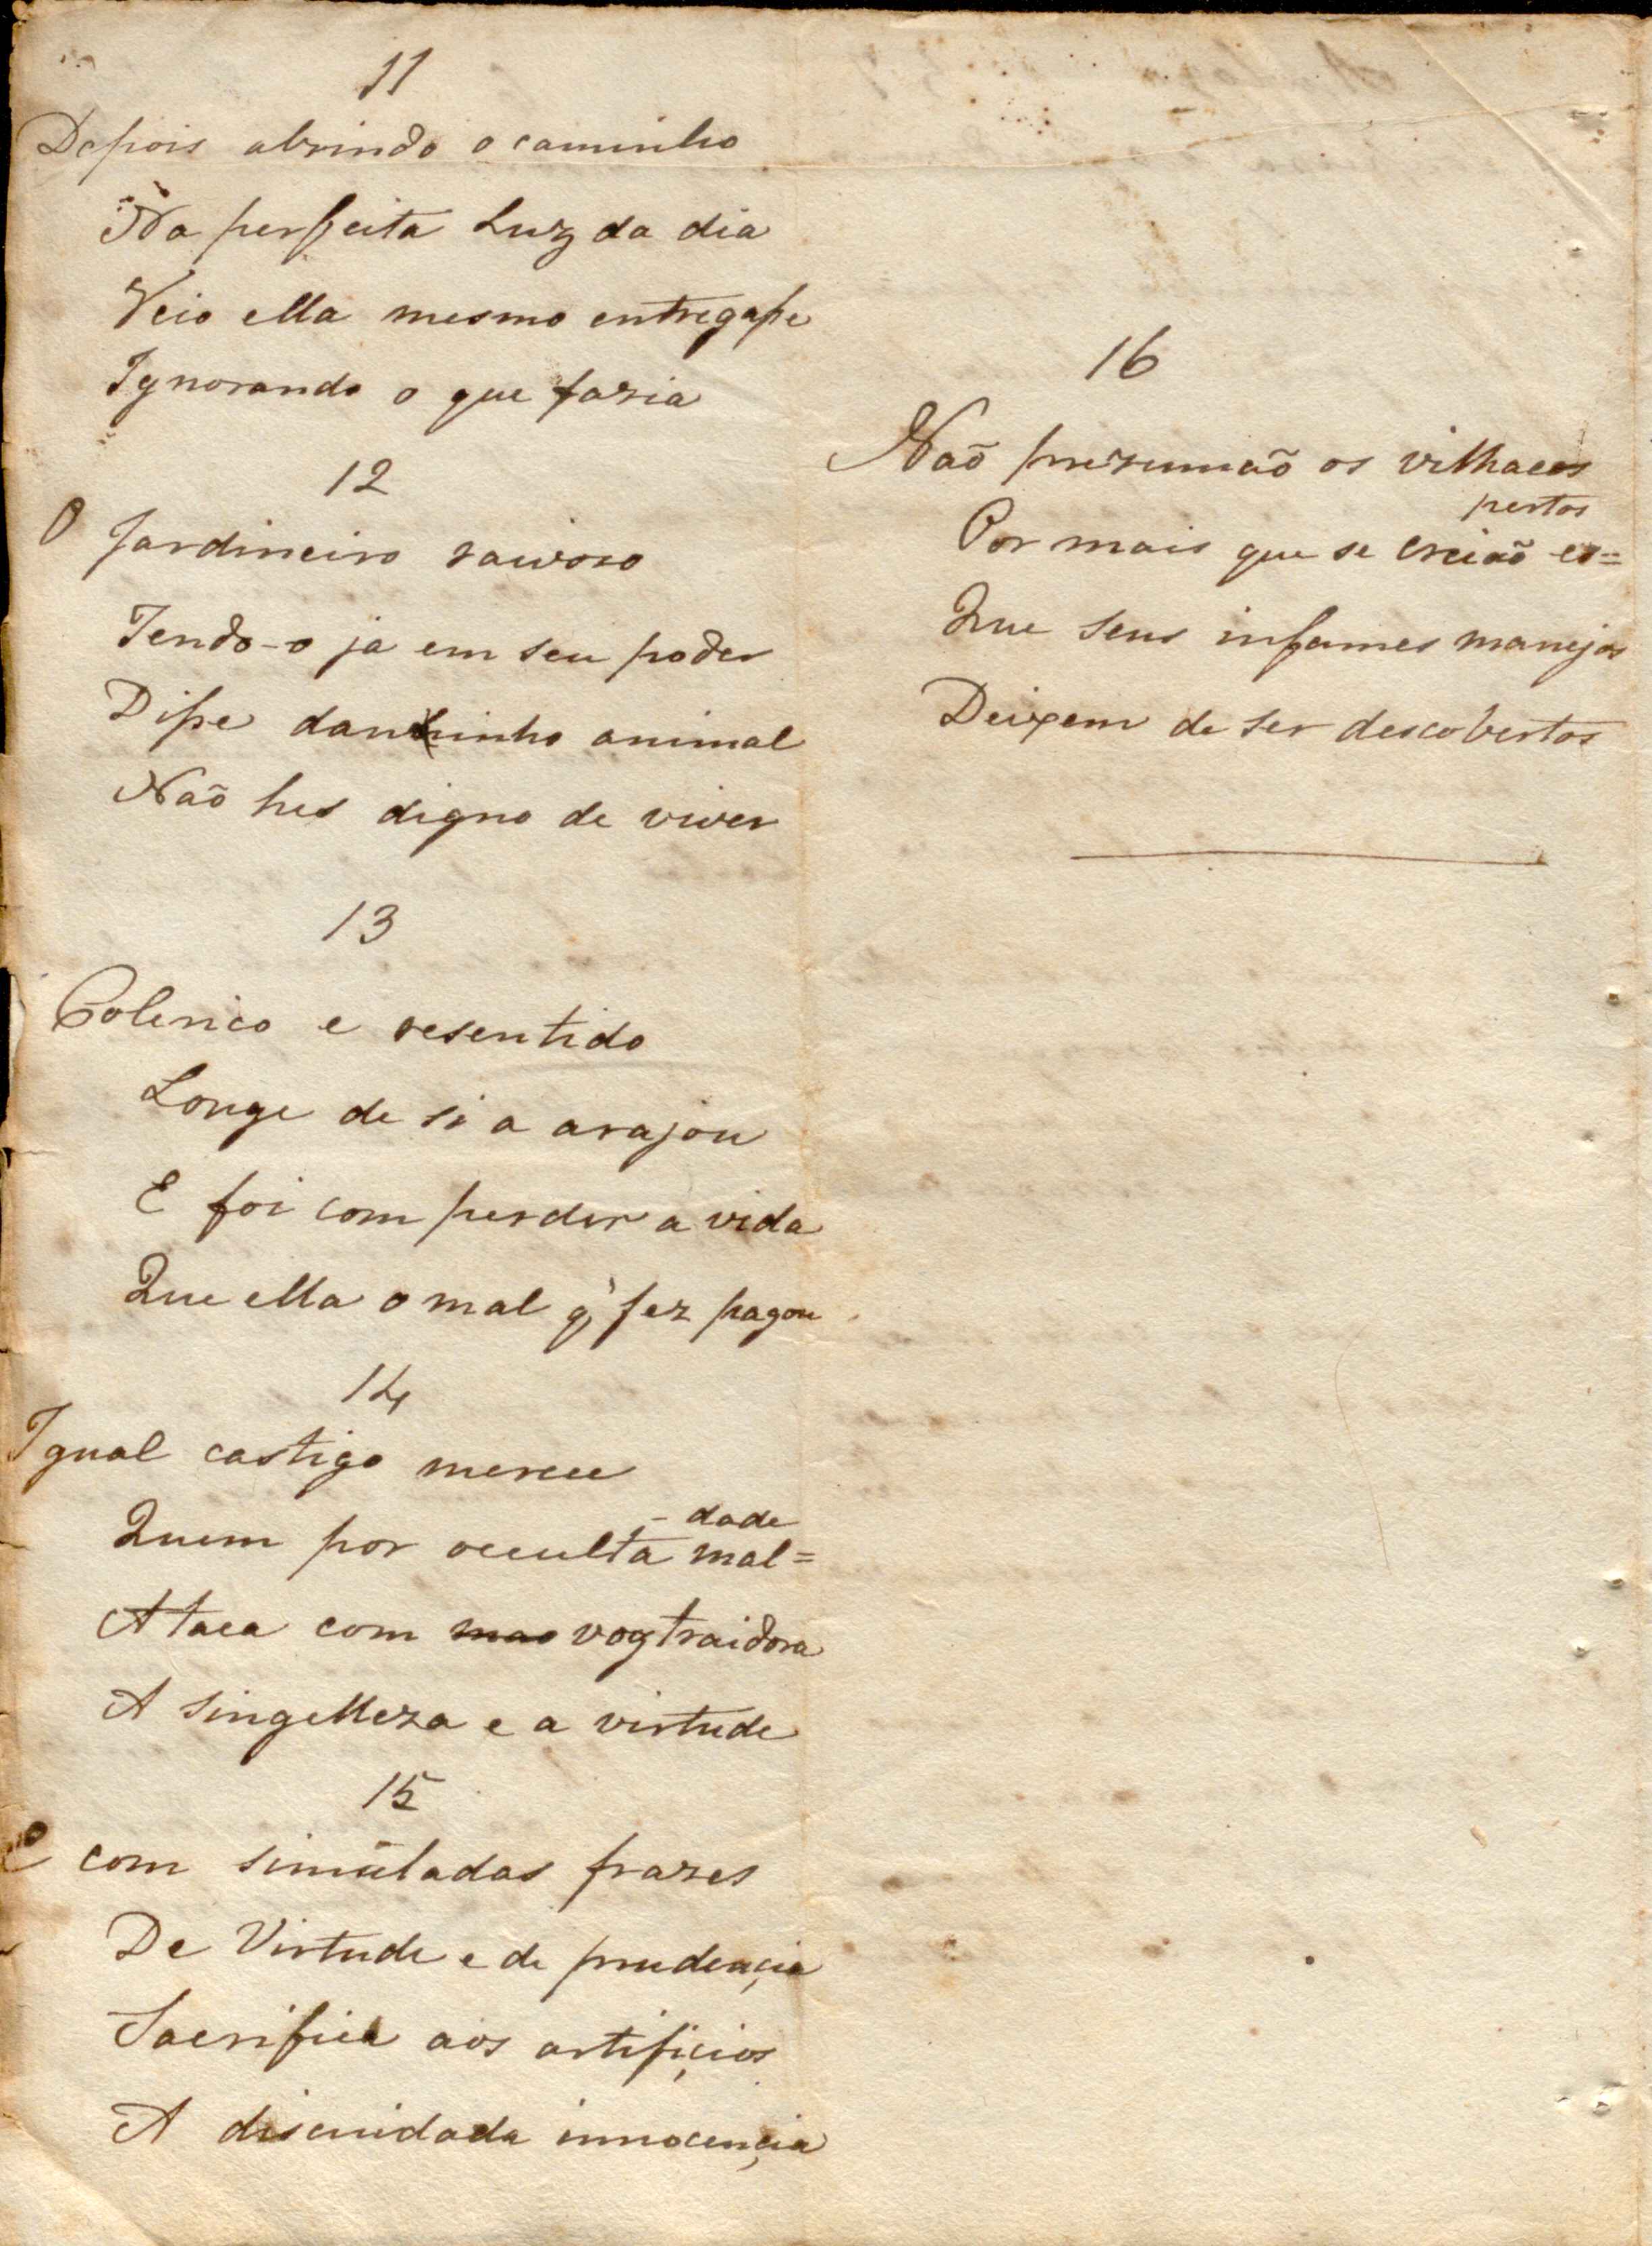 11
Depois abrindo o caminho
Na perfeita Luz da dia
Veio ella mesmo entregasse
Ignorando o que fazia
12
O Jardineiro raivozo
Tendo-o ja em seu poder
Disse daninho animal
Naõ hes digno de viver
13
Colerico e resentido
Longe de si a arajou
E foi com perder a vida
Que ella o mal q̀ fez pagou
14
Igual castigo merece
Quem por occulta mal=
-dade
Ataca com mao voz traidora
A singelleza e a virtude
15
E com simuladas frazes
De Virtude e de prudençia
Sacrifica aos artifiçios
A discuidada innocençia
16
Naõ prezumaõ os vilhacos
Por mais que se creiaõ es=
pertos
Que seus infames manejos
Deixem de ser descobertos